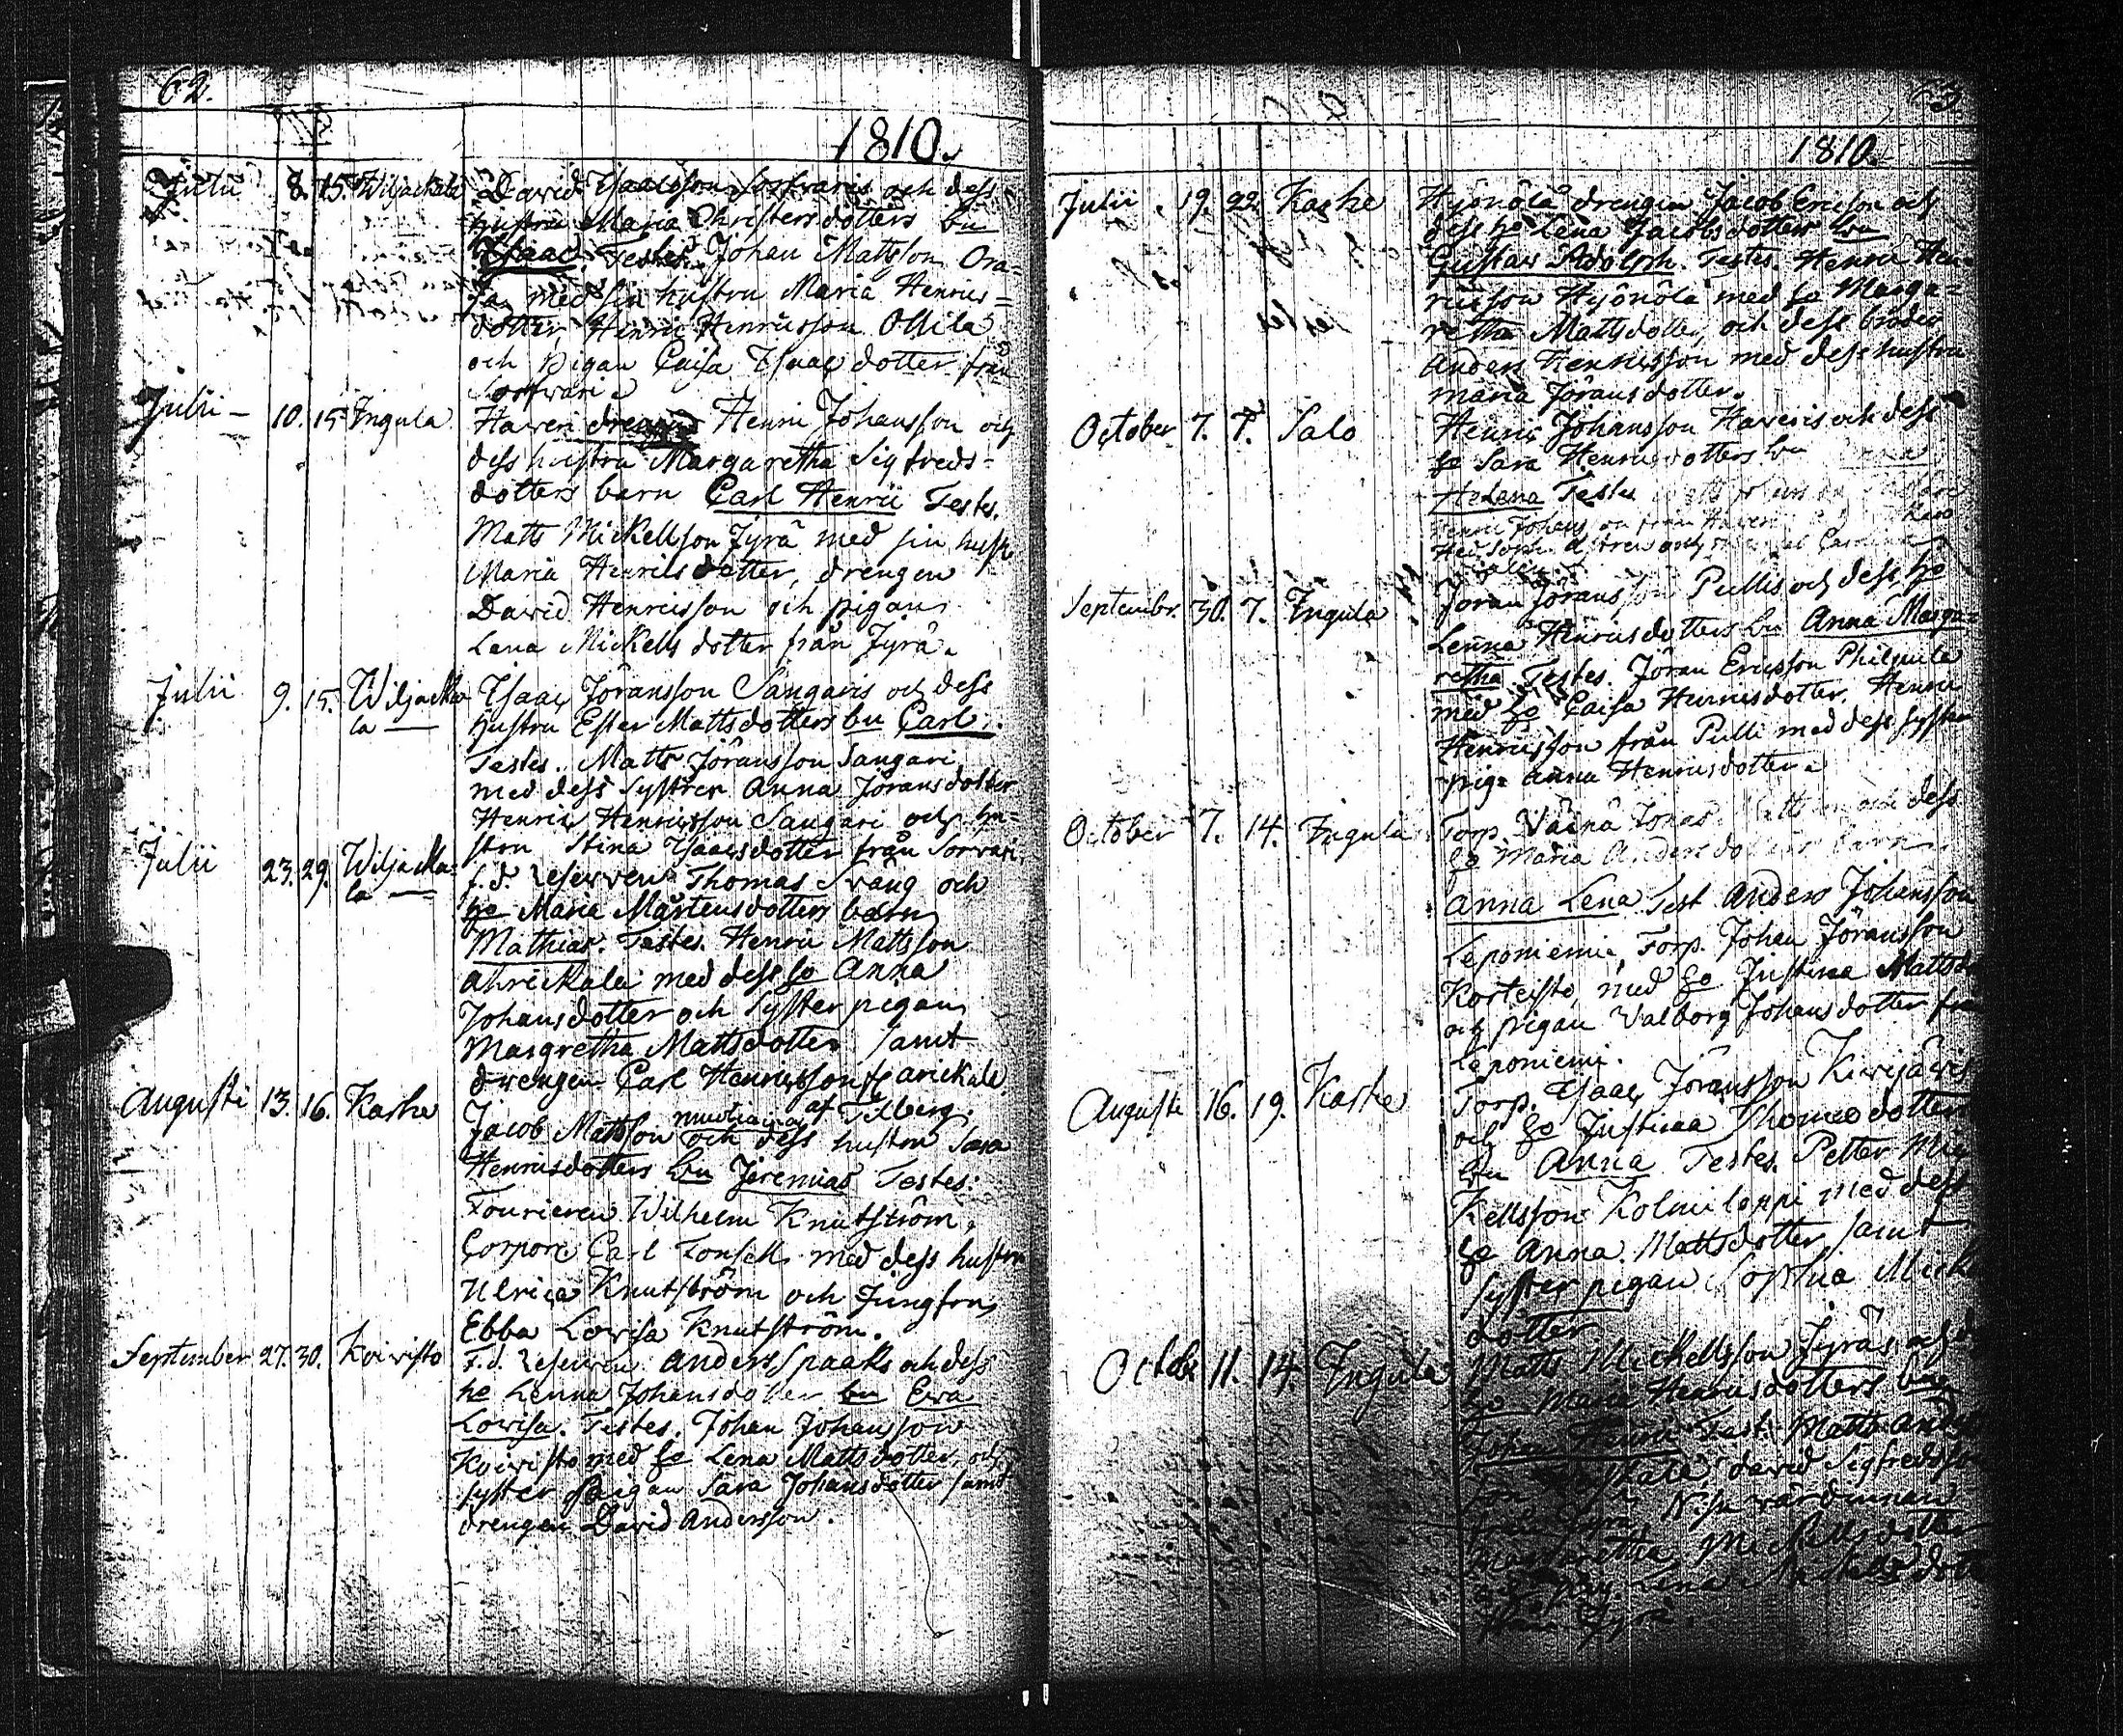 62.
1810.
Julii 8. 15. Wiljackala David Isaacsson Sorfvaris och dess
hustru Maria Christersdotters bn
Isaac. Testes Johan Mattsson Ora=
ja med sin hustru Maria Henrics=
dotter, Henric Henricsson Ollila
och Pigan Caisa Isaacsdotter från
Sorfvari.
Julii 10. 15 Ingula Haveri Henric Johansson och
dess hustru Margaretha Sigfreds=
dotters barn Carl Henric Testes.
Matts Mickellsson Jyrä med sin hust
Maria Henricsdotter, drengen
David Henricsson och pigan
Lena Mickells dotter från Jyrä.
Julii 9. 15. Wiljacka Isaac Jöransson Sangaris och dess
la hustru Ester Mattsdotters bn Carl.
Testes. Matts Jöransson Sangari
med dess Syster Anna Jöransdotter
Henric Henricsson Sangari och hu=
stru Stina Isaacsdotter från Sorvari.
Julii 23. 29. Wiljacka= f.d. Reserven Thomas Svang och
la ho Maria Mårtensdotters barn
Mathias. Testes. Henric Mattsson
med dess ho Anna
Johansdotter och Syster pigan
Margretha Mattsdotter samt
drengen Carl Henricsson
Augusti 13. 16. Karhe af
Jacob Mattsson och dess hustru Sara
Henricsdotters bn Jeremias Testes:
Fourieren Wilhelm Knutström,
Corpor: Carl med dess hustru
Ulrica Knutström och Jungfrus
Ebba Lovisa Knutström.
September 27. 30. Koivisto F.d. Reserven Anders Spaaks och dess
ho Lenna Johansdotter bn Eva
Lovisa. Testes. Johan Johansson
Koivisto med ho Lena Mattsdotter, och
syster Pigan Sara Johansdotter samt
drengen David Andersson.
63
1810.
Julii 19. 22. Karhe Hyönölä drengen Jacob Ericson och
dess ho Lena Jacobsdotters bn
Gustav Adolph. Testes. Henric Hen=
ricsson Hyönölä med ho Marga=
retha Mattsdotter, och dess broder
Anders Henricsson med dess hustru
Maria Jöransdotter.
October 7. 7. Salo Henric Johansson Haveris och dess
ho Sara Henricsdotters bn
Helena Testes
Septembr. 30. 7. Ingula Jöran Jöransson Pullis och dess ho
Lenna Henricsdotters bn Anna Marga=
retha. Testes. Jöran Ericsson Philpula
med ho Caisa Henricsdotter. Henric
Henricsson från Pulli med dess syster
pig. Anna Henricsdotter.
October 7. 14. Ingula Torp. Väinä Jonas och dess
ho Maria Andersdotters barn
Anna Lena Test Anders Johansson
Leponiemi, Torp. Johan Jöransson
Korteisto, med ho Justina Matts
och pigan Valborg Johansdotter från
Leponiemi.
Augusti 16. 19. Karhe Torp. Isaac Jöransson Kirvijärvis
och ho Justina Thomædotters
bn Anna Testes. Petter Mic
kellsson Kolmiloppi med dess
ho Anna Mattsdotter samt
Syster pigan Sophia Mick
dotter
Octobr 11. 14. Ingula Matts Mickellsson Jyräs, och
ho Maria Henricsdotters barn
Johan Henric Test. Matts Anders
son David Sigfredsson
från Jyrä, Nisu
Margaretha Mickellsdotter
och pig. Lena Mickellsdott
från Jyrä.